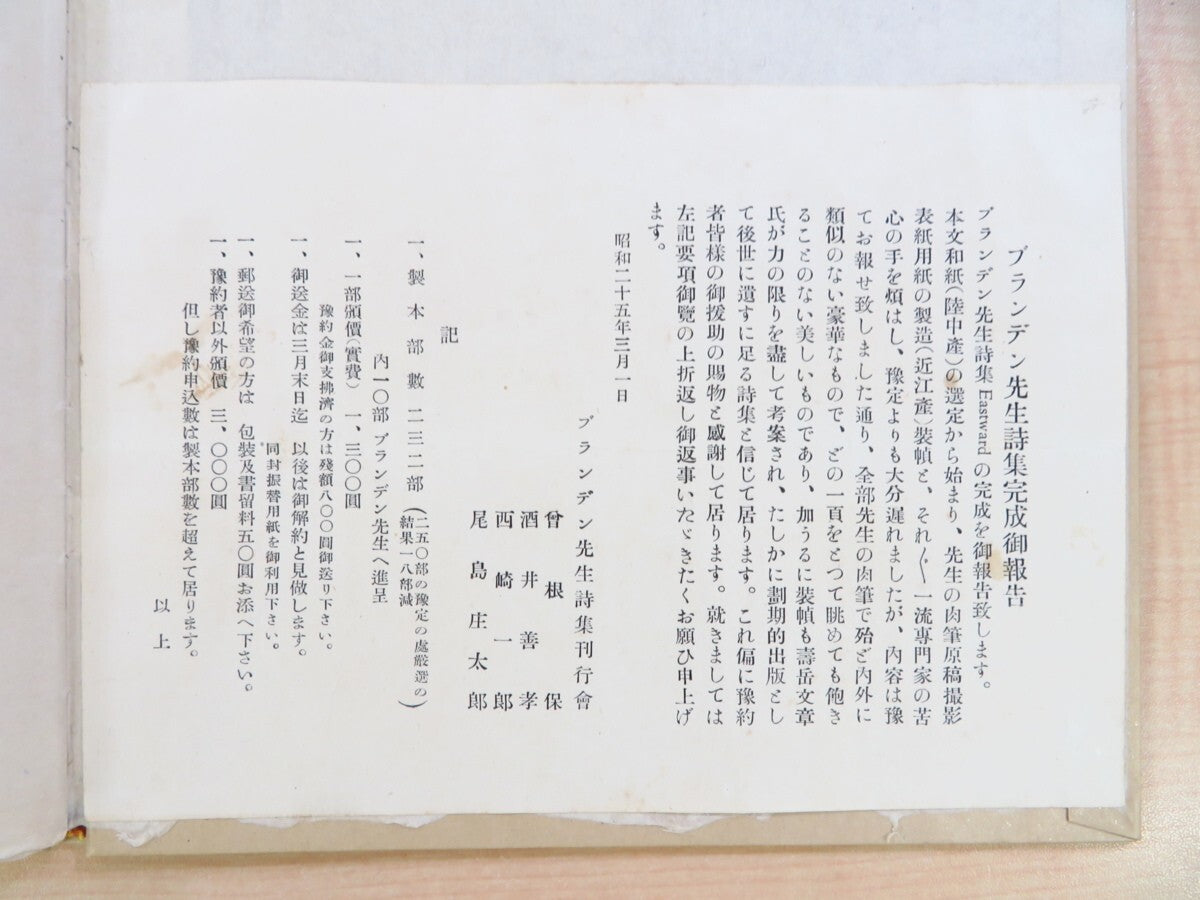 ブランデン先生詩集完成御報告
ブランデン先生詩集 Eastward の完成を御報告致します。
本文和紙（陸中產）の選定から始まり、先生の肉筆原稿撮影
表紙用紙の製造（近江產）裝幀と、それ〲一流專門家の苦
心の手を煩はし、豫定よりも大分遲れましたが、內容は豫
てお報せ致しました通り、全部先生の肉筆で殆ど內外に
類似のない豪華なもので、どの一頁をとつて眺めても飽き
ることのない美しいものであり、加うるに裝幀も壽岳文章
氏が力の限りを盡して考案され、たしかに劃期的出版とし
て後世に遺すに足る詩集と信じて居ります。これ偏に豫約
者皆樣の御援助の賜物と感謝して居ります。就きましては
左記要項御覽の上折返し御返事いたゞきたくお願ひ申上げ
ます。
昭和二十五年三月一日
ブランデン先生詩集刊行會
曾根保
酒井善孝
西崎一郎
尾島庄太郎
記
一、製本部數 二三二部（二五〇部の豫定の處嚴選の
結果一八部減）
內一〇部ブランデン先生へ進呈
一、一部頒價（實費） 一、三〇〇圓
豫約金御支拂濟の方は殘額八〇〇圓御送り下さい。
一、御送金は三月末日迄 以後は御解約と見做します。
同封振替用紙を御利用下さい。
一、郵送御希望の方は 包裝及書留料五〇圓お添へ下さい。
一、豫約者以外頒價 三、〇〇〇圓
但し豫約申込數は製本部數を超えて居ります。
以上